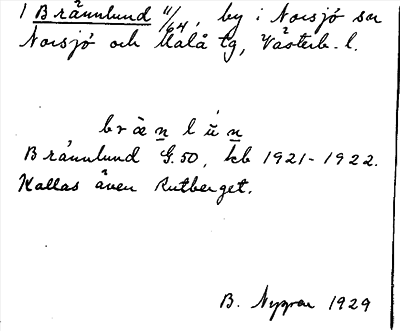 1 Brännlund 11/64, by i Norsjö sn
Norsjö och Malå tg, Västerb. l.
bræ̀n lún
Brännlund G.50, kb 1921-1922.
Kallas även Rutberget.
B. Nygren 1929